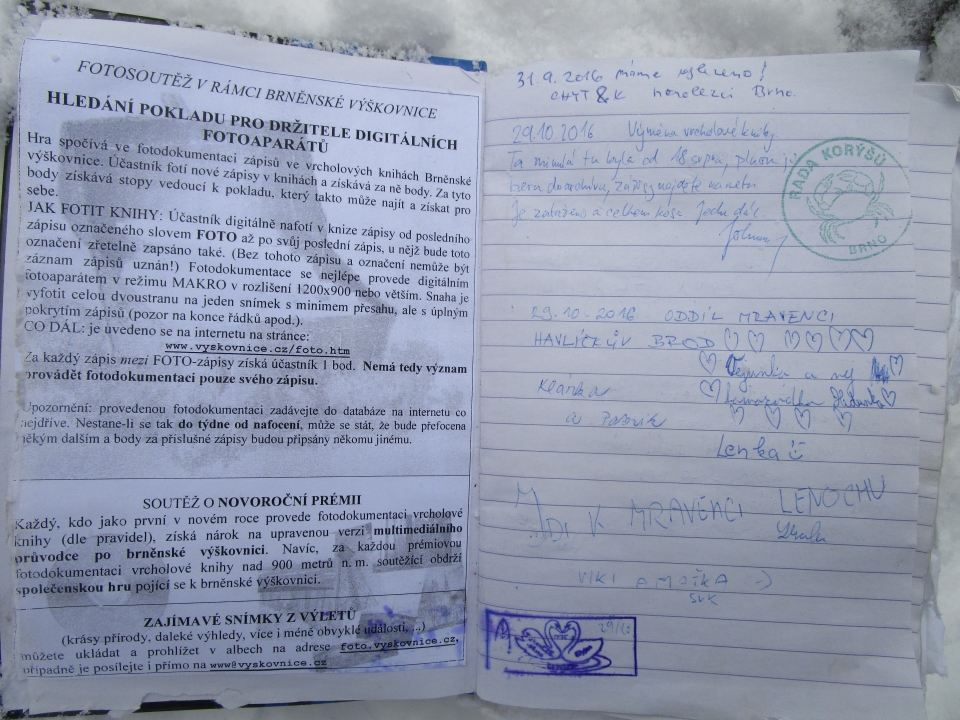 FOTOSOUTĚŽ V RÁMCI BRNĚNSKÉ VÝŠKOVNICE
HLEDÁNÍ POKLADU PRO DRŽITELE DIGITÁLNÍCH
FOTOAPARÁTŮ
Hra spočívá ve fotodokumentaci zápisů ve vrcholových knihách Brněnské
výškovnice. Účastník fotí nové zápisy v knihách a získává za ně body. Za tyto
body získává stopy vedoucí k pokladu, který takto může najít a získat pro
sebe.
JAK FOTIT KNIHY: Účastník digitálně nafotí v knize zápisy od posledního
zápisu označeného slovem FOTO až po svůj poslední zápis, u nějž bude toto
označení zřetelně zapsáno také. (Bez tohoto zápisu a označení nemůže být
záznam zápisů uznán!) Fotodokumentace se nejlépe provede digitálním
fotoaparátem v režimu MAKRO v rozlišení 1200x900 nebo větším. Snaha je
vyfotit celou dvoustranu na jeden snímek s minimem přesahu, ale s úplným
pokrytím zápisů (pozor na konce řádků apod.).
CO DÁL: je uvedeno se na internetu na stránce:
www.vyskovnice.cz/foto.htm
Za každý zápis mezi FOTO-zápisy získá účastník 1 bod. Nemá tedy význam
provádět fotodokumentaci pouze svého zápisu.
Upozornění: provedenou fotodokumentaci zadávejte do databáze na internetu co
nejdříve. Nestane-li se tak do týdne od nafocení, může se stát, že bude přefocena
někým dalším a body za příslušné zápisy budou připsány někomu jinému.
SOUTĚŽ O NOVOROČNÍ PRÉMII
Každý, kdo jako první v novém roce provede fotodokumentaci vrcholové
knihy (dle pravidel), získá nárok na upravenou verzi multimediálního
průvodce po brněnské výškovnici. Navíc, za každou prémiovou
fotodokumentaci vrcholové knihy nad 900 metrů n. m. soutěžící obdrží
společenskou hru pojící se k brněnské výškovnici.
ZAJÍMAVÉ SNÍMKY Z VÝLETŮ
(krásy přírody, daleké výhledy, více i méně obvyklé události, ...)
můžete ukládat a prohlížet v albech na adrese foto.vyskovnice.cz,
případně je posílejte i přímo na www@vyskovnice.cz
31.9.2016 máme vyhlíženo!
CHYT&K Brno.
29.10.2016 Výměna vrcholové knihy
Ta minulá tu byla od 18 srpna, plnou ji
beru do archivu, zápisy najdete na netu
Je zataženo a celkem kosa. Jedu dál.
RADA KORÝŠŮ
BRNO
29.10.2016 ODDÍL MRAVENCI
HAVLÍČKŮV BROD
a její
Klárka
a Patrik
Lenka
JDI K MRAVENCI LENOCHU
VIKI A MOŇKA :-)
SVK
29/10